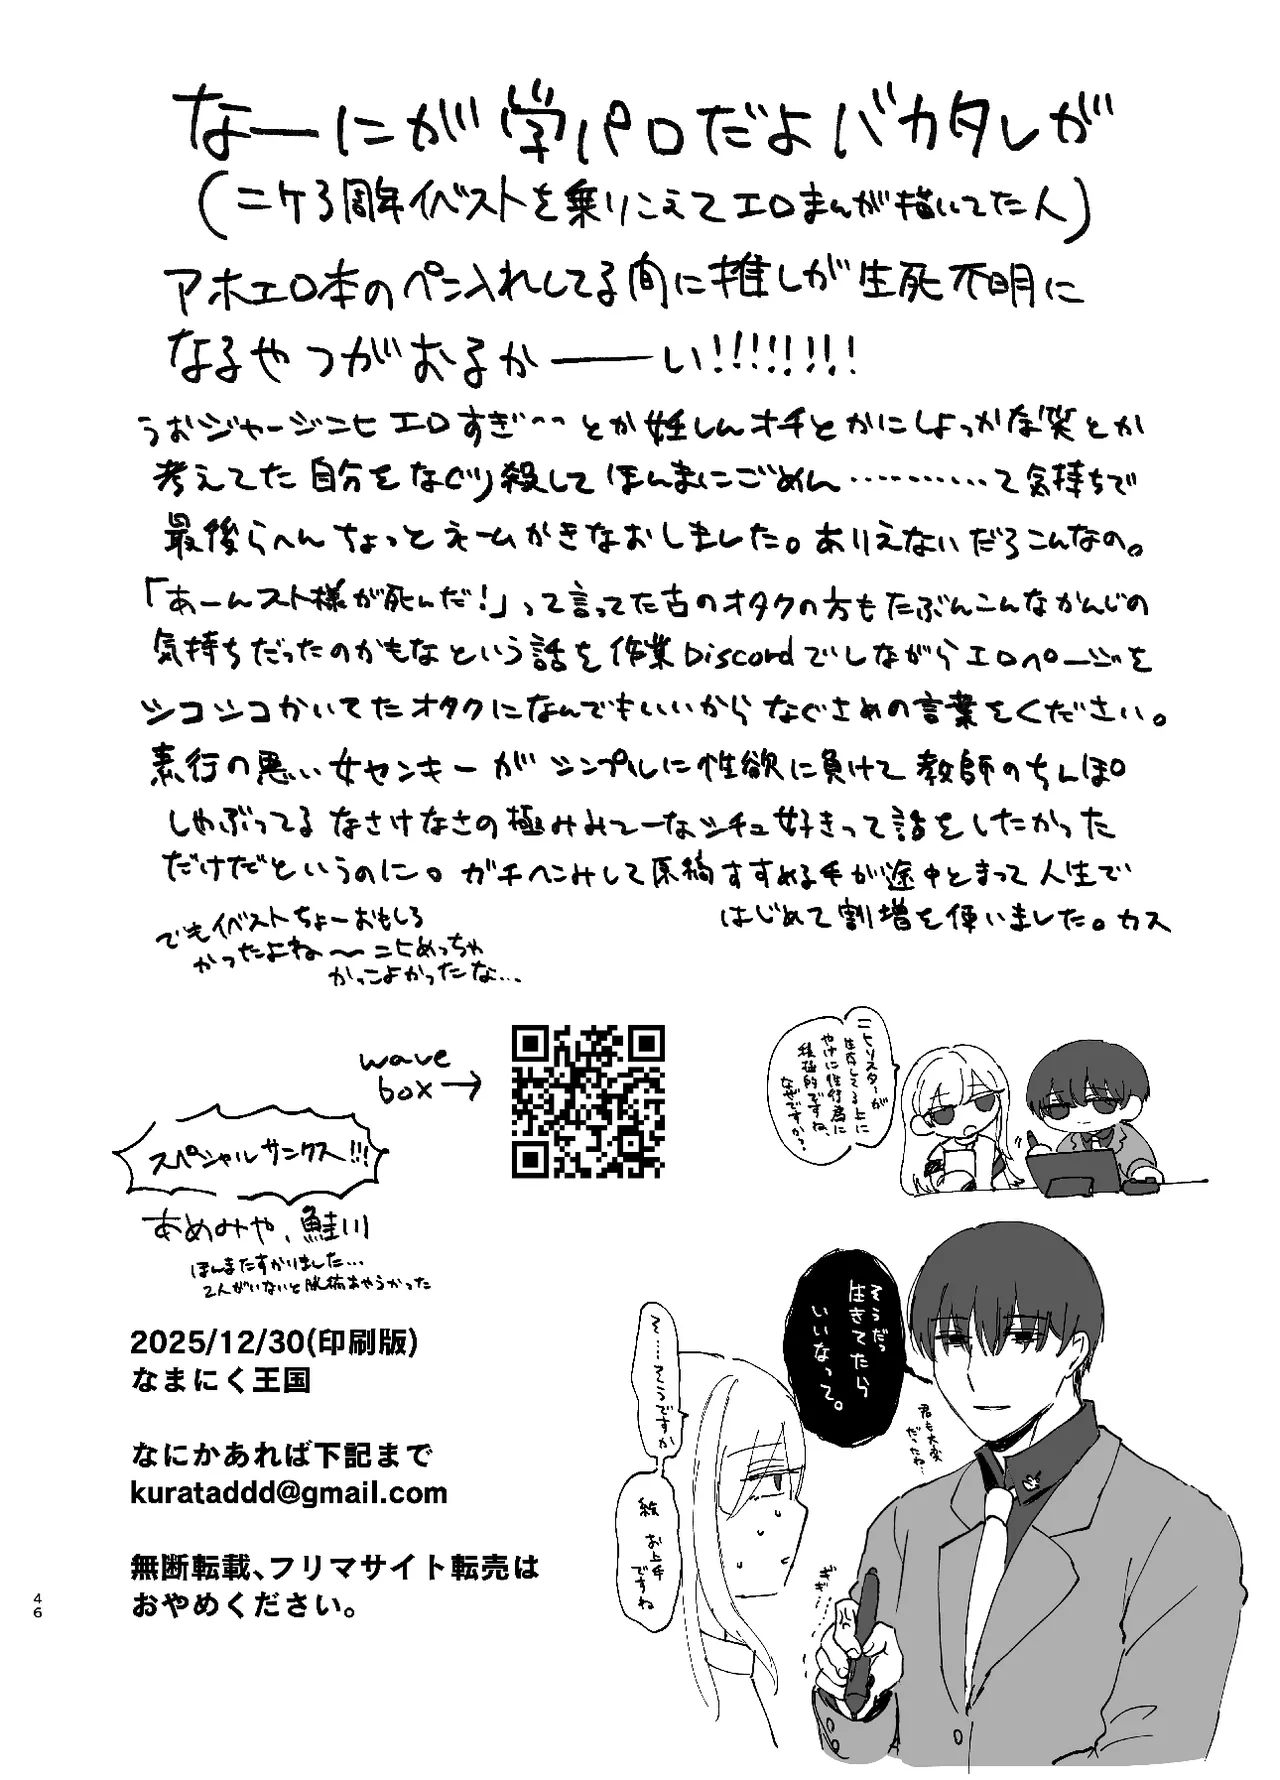 なーにが学パロだよバカタレが
(ニケ3周年イベストを乗りこえてエロまんが描いてた人)
アホエロ本のペン入れしてる間に推しが生死不明に
なるやつがおるかーーい!!!!!!!!
うおジャージニヒエロすぎ^^とか妊しんオチとかにしよっかな笑とか
考えてた自分をなぐり殺してほんまにごめん…………て気持ちで
最後らへんちょっとネームかきなおしました。ありえないだろこんなの。
「あーんスト様が死んだ!」って言ってた古のオタクの方もたぶんこんなかんじの
気持ちだったのかもなという話を作業Discordでしながらエロページを
シコシコかいてたオタクになんでもいいからなぐさめの言葉をください。
素行の悪い女センキーがシンプルに性欲に負けて教師のちんぽ
しゃぶってるなさけなさの極みみてーなシチュ好きって話をしたかった
だけだというのに。ガチヘンみして原稿すすめる手が途中とまって人生で
はじめて割増を使いました。カス
でもイベストちょーおもしろ
かったよね〜ニヒめっちゃ
かっこよかったな…
wave
box→
スペシャルサンクス!!!
あめみや、鮭川
ほんまたすかりました…
2人がいないと脱稿あやうかった
2025/12/30(印刷版)
なまにく王国
なにかあれば下記まで
kurataddd@gmail.com
無断転載、フリマサイト転売は
おやめください。
ニヒリスターが
生存してる上に
やけに性行為に
積極的ですね、
なぜですか?
そうだっ
生きてたら
いいなって。
君も大変
だったね…
そ……そうですか
絵
お上手
ですね
ギギ…
46